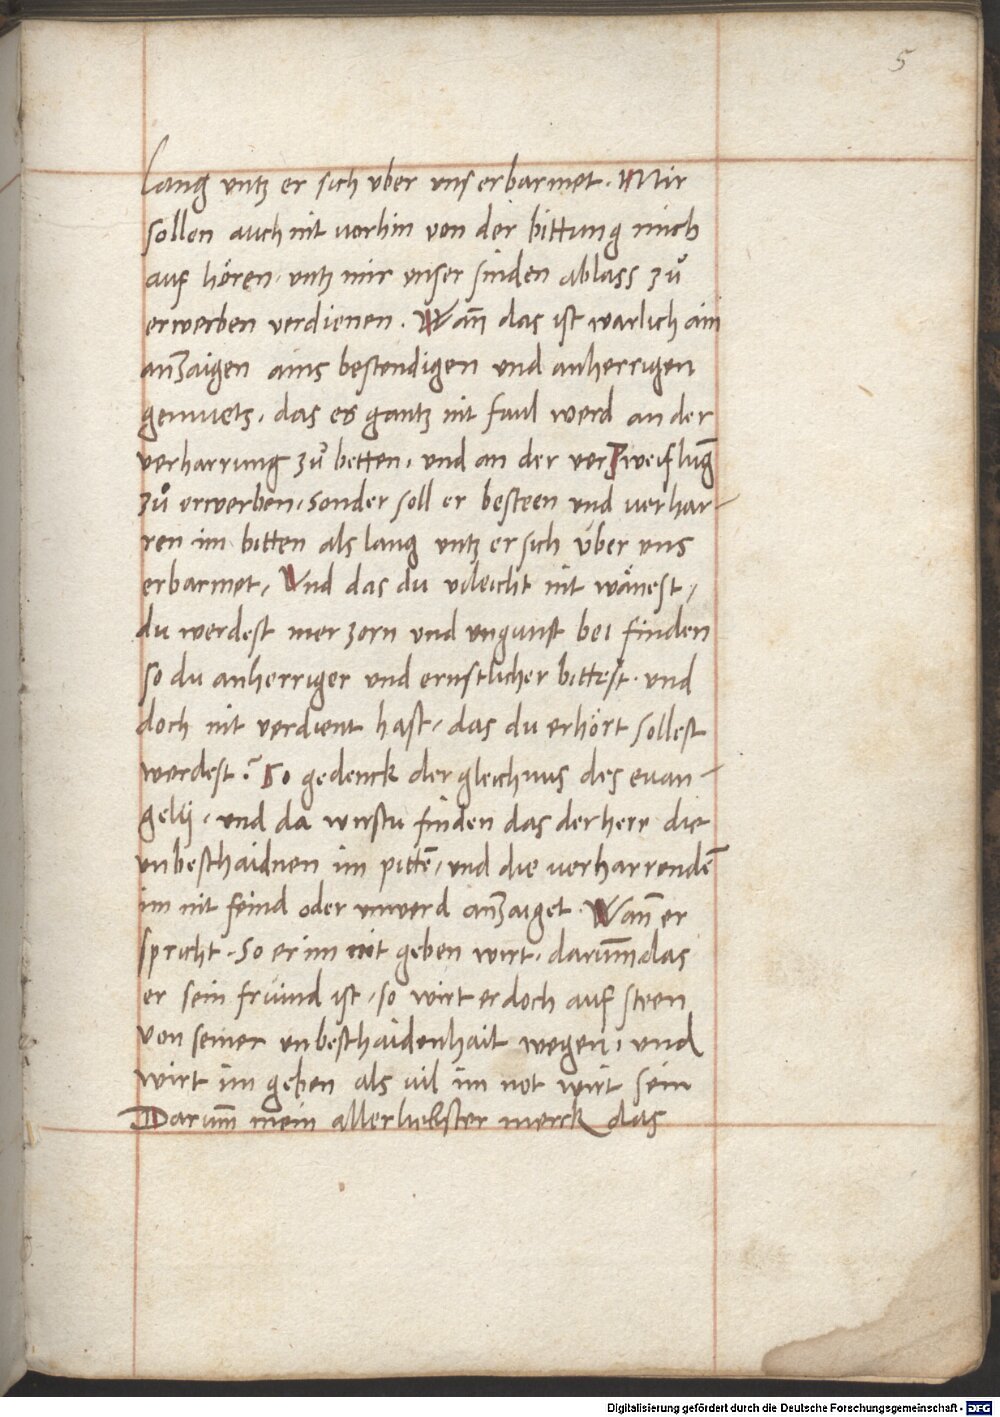 5
lang untz er sich uber uns erbarmet. Mir
sollen auch nit vorhin von der bittung mich
auf hören, untz mir unser sinden ablass zů
erwerben verdienen. Wan̄ das ist warlich ain
anzaigen ains bestendigen und anherrigen
gemuets, das es gantz nit faul werd an der
verharrung zů betten, und an der verzweifluḡ
zů erwerben, sonder soll er besteen und verhar-
ren im bitten als lang untz er sich über uns
erbarmet, Und das du vileicht nit wänest,
du werdest mer zorn und ungunst bei finden
so du anherriger und ernstlicher bittest. und
doch nit verdient hast, das du erhört sollest
werdest? So gedenck der gleichnus des euan-
gelij, und da wirstu finden das der herr die
unbeschaidnen im pittē, und die verharrendē
im nit feind oder unwerd anzaiget. Wan̄ er
spricht. So er im nit geben wirt, darum̄ das
er sein fruind ist, so wirt er doch auf steen
von seiner unbeschaidenhait wegen, und
wirt im geben als vil im not wirt sein
Darum̄ mein allerliebster merck das
Digitalisierung gefördert durch die Deutsche Forschungsgemeinschaft - DFG